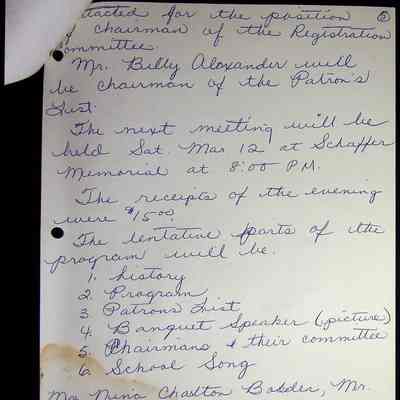 tacted for the position ⑤
chairman of the Registration
ommittee.
Mr. Billy Alexander will
be chairman of the Patron's
List.
The next meeting will be
held Sat. Mar 12 at Schaffer
Memorial at 8:00 P.M.
The receipts of the evening
were $15.00.
The tentative parts of the
program will be.
1. history
2. Program
3 Patrons List
4. Banquet Speaker (picture)
5. Chairmans & their committee
6. School Song
Mrs Nina Charlton Mr.